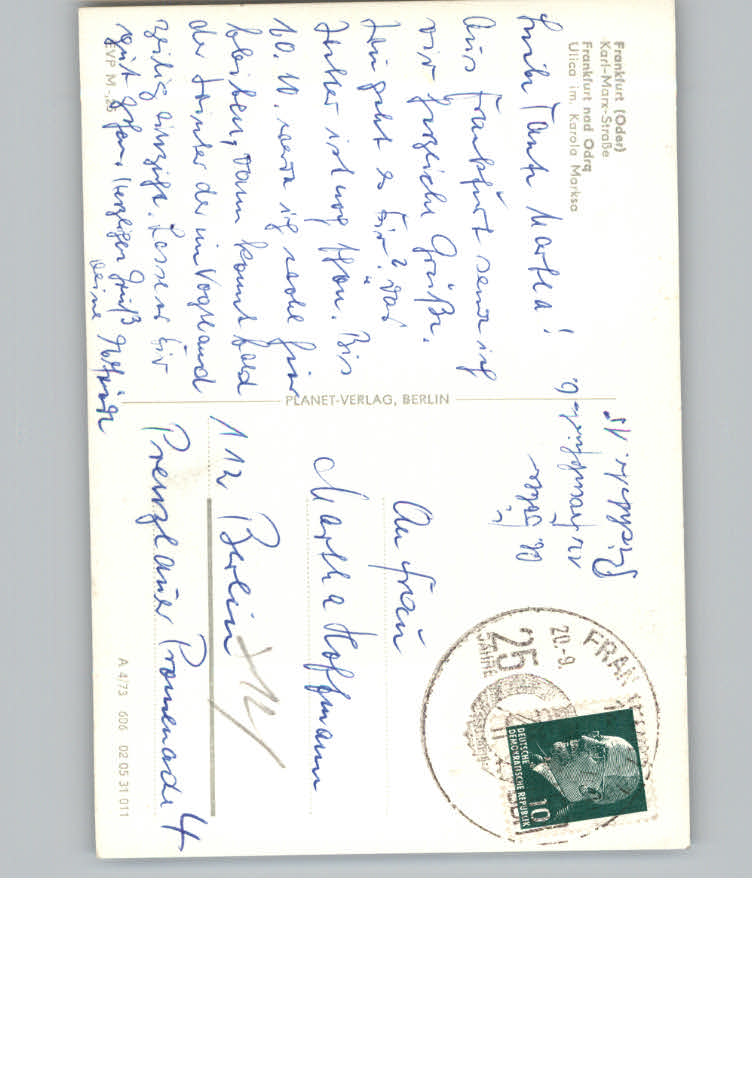 Frankfurt (Oder)
Karl-Marx-Straße
Frankfurt nad Odrą
Ulica im. Karola Marksa
Liebe Tante Martha!
Aus Frankfurt sende ich
dir herzliche Grüße.
Wie geht es Dir? Das
Wetter ist noch schön. Bis
10. 10. werde ich wohl hier
bleiben, dann kommt bald
der Winter der im Vogtland
zeitig einzieht. Lasse es Dir
gut gehen. Herzlichen Gruß
Deine
EVP M -,25
PLANET-VERLAG, BERLIN
An Frau
Martha Hoffmann
112 Berlin
Prenzlauer Promenade 4
FRANKFURT
20.-9.
25
JAHRE
DEUTSCHE
DEMOKRATISCHE REPUBLIK
10
A 4/73 606 02 05 31 011